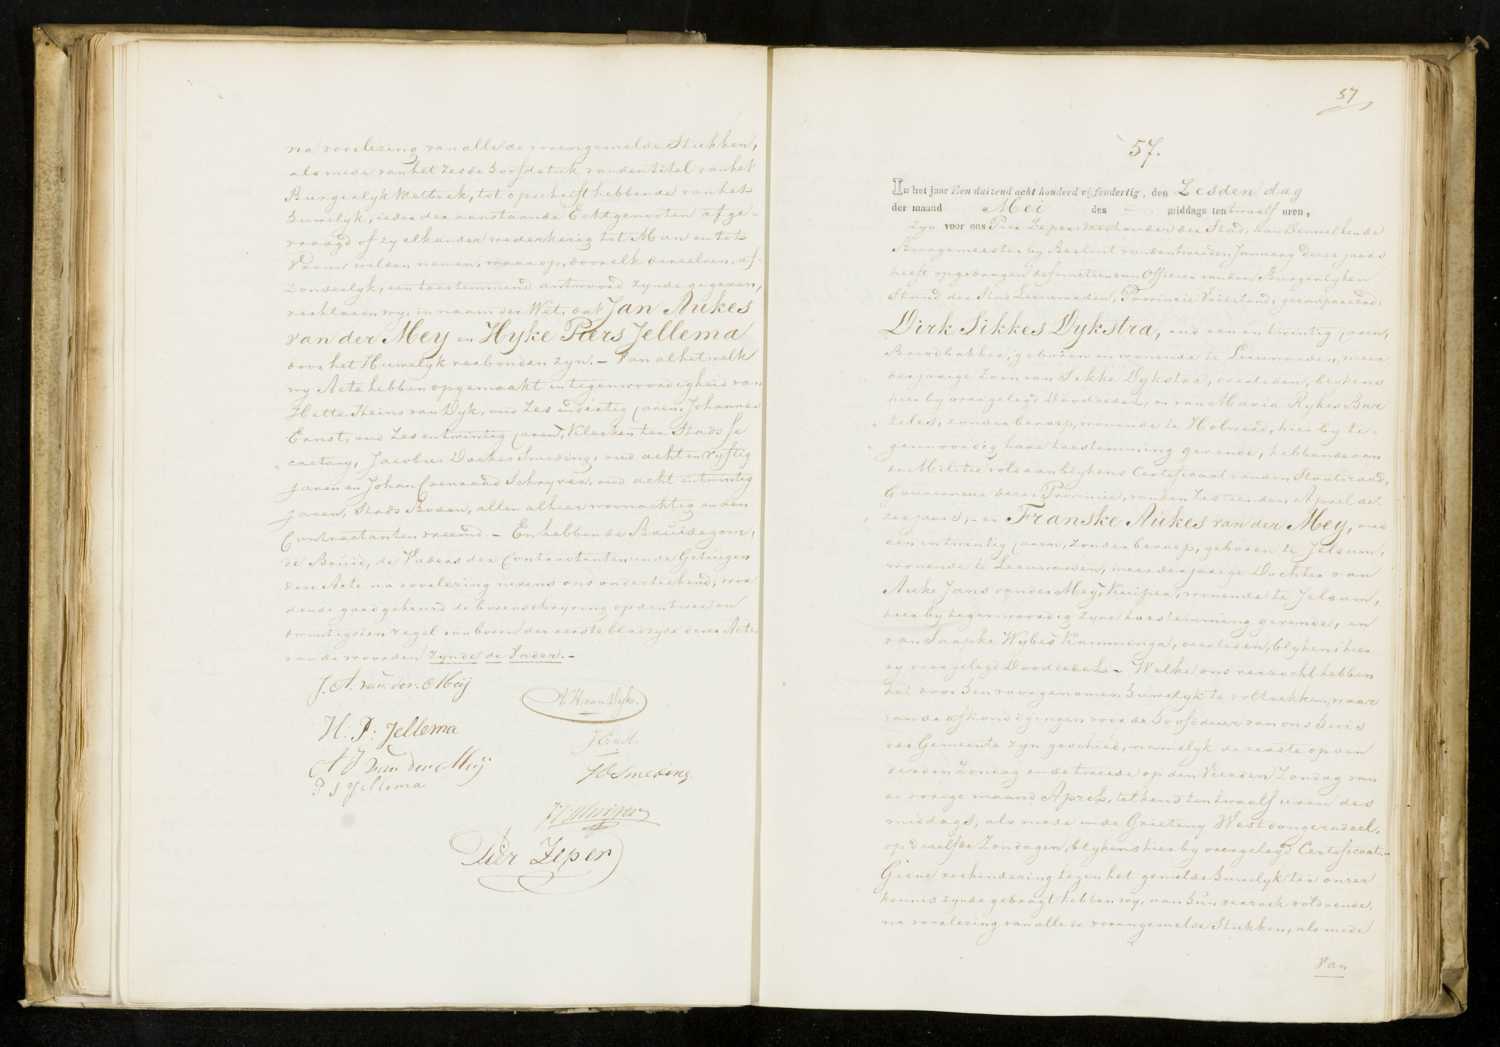 na voorlezing van alle de vorengemelde Stukken,
als mede van het Zesde Hoofdstuk van den titel van het
Burgerlyk Wetboek, tot opschrift hebbende van het
Huwelyk, ieder der aanstaande Echtgenooten afge-
vraagd of zy elkander wederkeerig tot Man en tot
Vrouw wilden nemen, waarop, door elk derzelven, af-
zonderlyk, een toestemmend antwoord zynde gegeven,
verklaren wy, in naam der Wet, dat Jan Aukes
van der Mey en Hyke Piers Jellema
door het Huwelyk verbonden zyn. – Van al het welk
wy Acte hebben opgemaakt in tegenwoordigheid van
Hette Heins van Dyk, oud Zes en dertig jaren, Johannes
Ernst, oud Zes en twintig jaren, Klerken ter Stads Se-
cretary, Jacobus Smeding, oud acht en vyftig
jaren en Johan Coenraad Schryver, oud acht en twintig
jaren, Stads Boden, allen alhier woonachtig en den
Contractanten vreemd. – En hebben de Bruidegom,
de Bruid, de Vaders der Contractanten en de Getuigen
den Acte na voorlezing nevens ons onderteekend, wor-
dende goedgekeurd de tusschenschryving op den twee en
twintigsten regel van boven der eerste bladzyde dezer Acte
van de woorden zynde de Vader. –
J. A. van der Meij
H. P. Jellema
A J van der Meij
P. J Jellema
H. H. van Dyk.
J Ernst
JD Smeding
JC Schrijver
Pier Zeper
57
57.
In het jaar Een duizend acht honderd vijfenveertig, den Zesden dag
der maand Mei des middags ten twaalf uren,
Zyn voor ons Pier Zeper Wethouder der Stad, van
Burgemeester by Besluit van den tweeden January dezes jaars
heeft opgedragen de functien van Officier van den Burgerlyken
Stand der Stad Leeuwarden, Provincie Vriesland, gecompareerd:
Dirk Sikkes Dykstra, oud een en twintig jaren,
Broodbakker, geboren en wonende te Leeuwarden, meer-
derjarige Zoon van Sikke Dykstra, overleden, blykens
hier by overgelegd Doodcedul, en van Maria Rykes Bar-
teles, zonder beroep, wonende te Holwerd, hier by te-
genwoordig hare toestemming gevende, hebbende aan
de Militie voldaan blykens Certificaat van den Staatsraad,
Gouverneur dezer Provincie, van den Zestienden April de-
zes jaars, – en Franske Aukes van der Mey, oud
een en twintig jaren, zonder beroep, geboren te Jelsum,
wonende te Leeuwarden, meerderjarige Dochter van
Auke Jans van der Mey, Kuiper, wonende te Jelsum,
hier by tegenwoordig zyne toestemming gevende, en
van Saapke Wybes Kammenga, overleden, blykens hier
by overgelegd Doodcedul. – Welke ons verzocht hebben
het door hen voorgenomen Huwelyk te voltrekken, waar
van de afkondigingen voor de Hoofddeur van ons Huis
der Gemeente zyn geschied, namelyk de eerste op den
derden Zondag en de tweede op den Vierden Zondag van
de vorige maand April, telkens ten twaalf uren des
middags, als mede in de Grieteny Westdongeradeel,
op dezelfde Zondagen, blykens hier by overgelegd Certificaat. –
Geene verhindering tegen het gemelde Huwelyk ter onzer
kennis zynde gebragt hebben wy, aan hun verzoek voldoende,
na voorlezing van alle de vorengemelde Stukken, als mede
Van